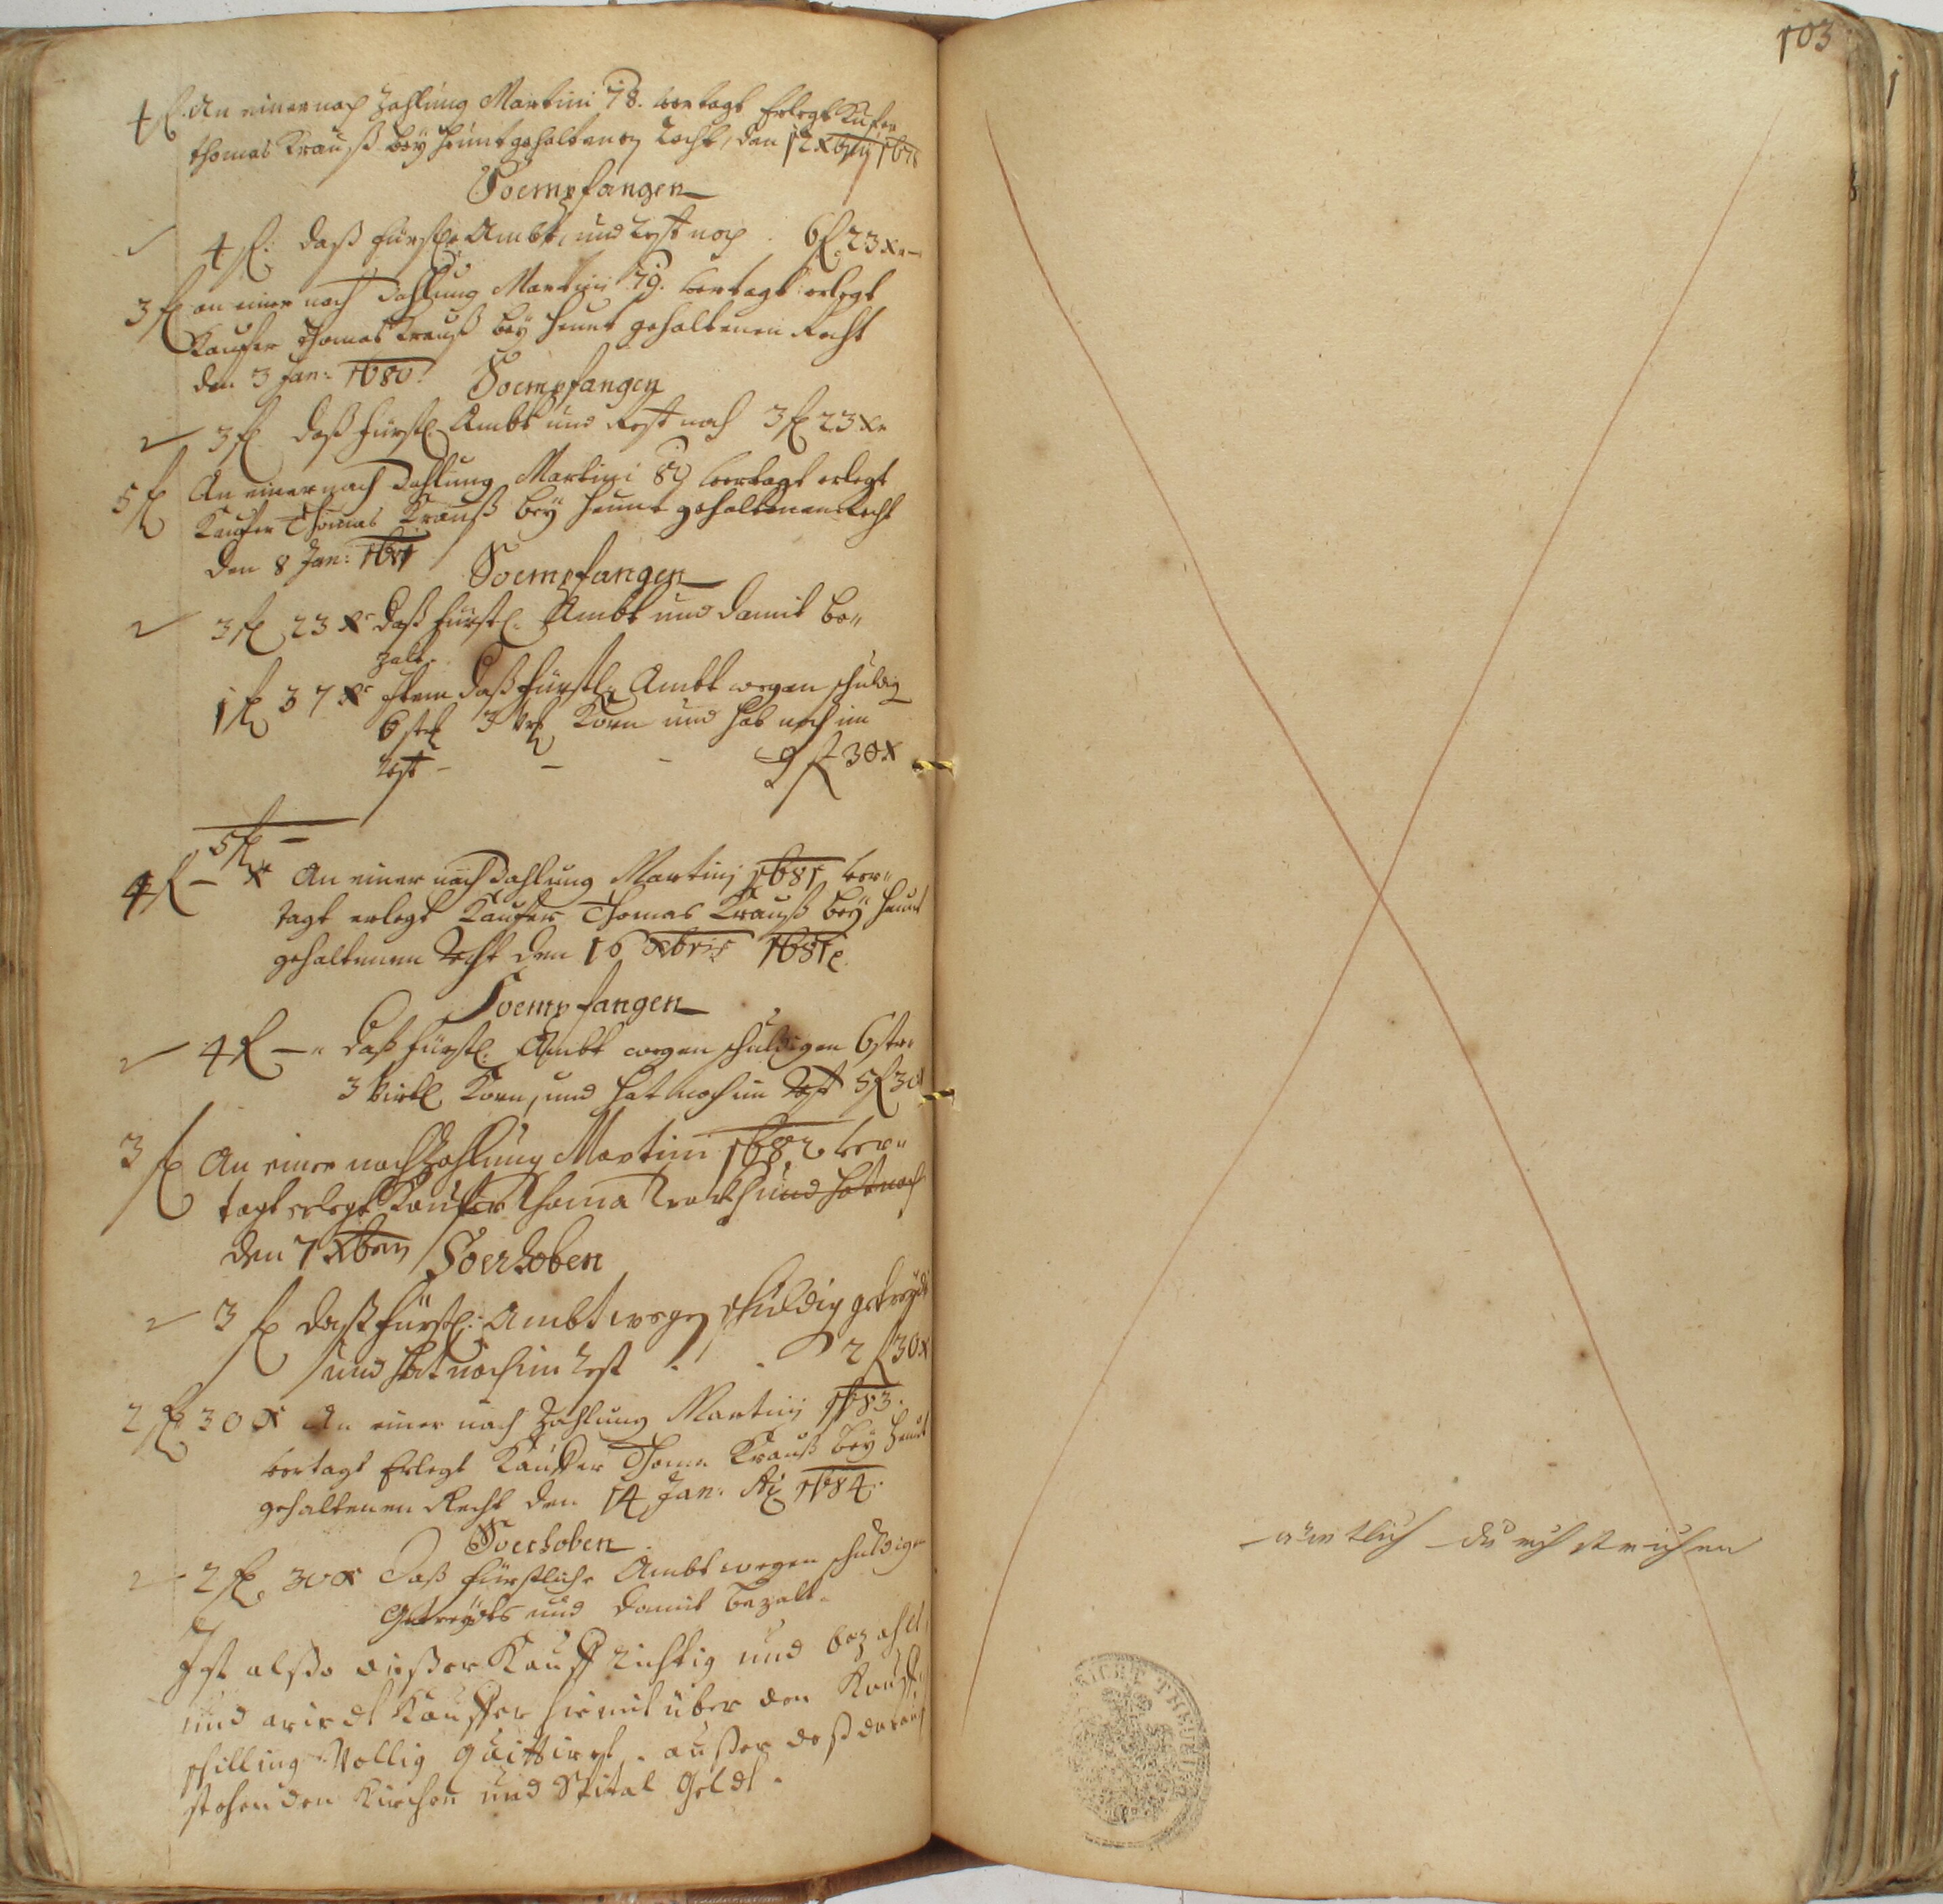 4 f. An einer nach Zahlung Martini 78. vertagt Erlegt Kufer
Thomas Krauß bey heunt gehaltenen Recht, den 12 Xbris 1678
So empfangen
4 f: daß fürstl. Ambt, und Rest noch 6 f. 23 x.
3 f an einer nach Zahlung Martini 79. vertagt erlegt
Kaufer Thomas Krauß bey heunt gehaltenen Recht
den 3 Jan: 1680.
So empfangen
3 f daß fürstl. Ambt und Rest noch 3 f 23 x
5 f An einer nach Zahlung Martini 80 vertagt erlegt
Kaufer Thomas Krauß bey heunt gehaltenen Recht
den 8 Jan: 1681
So empfangen
3 f 23 x daß fürstl. Ambt und damit be„
zalt.
1 f 37 x Item daß Fürstl. Ambt wegen schuldig
6 str 3 vrl Korn und hat noch im
Rest – – – 9 f 30 x
5 f –
4 f – x An einer nach Zahlung Martinj 1681 ver„
tagt erlegt Kaufer Thomas Krauß bey heunt
gehaltenen Recht den 16 Xbris 1681.
So empfangen
4 f – „ daß fürstl. Ambt wegen schuldigen 6 str
3 virtl Korn, und hat noch im Rest 5 f 30
3 f An einer nach Zahlung Martini 1682 ver„
tagt erlegt Kaufer Thoma und hat noch
den 7 Xbris
So erhoben
3 f daß Fürstl: Ambt wegen schuldig getreydt
und hat noch im Rest . . 2 f 30 x
2 f 30 x An einer nach Zahlung Martinj 1683.
vertagt Erlegt Kauffer Thoma Krauß bey heunt
gehaltenen Recht den 14 Jan: Ao 1684.
So erhoben
2 f. 30 x Daß Fürstliche Ambt wegen schuldigen
Getreydts und damit bezalt.
Ist alßo dießer Kauff richtig und bezahlt,
und wirdt Kauffer hiemit über den Kauff„
schilling Vollig quittirt. außer deß darauf
stehenden Kirchen und Spital Geldt.
103
amtlich durchstrichen